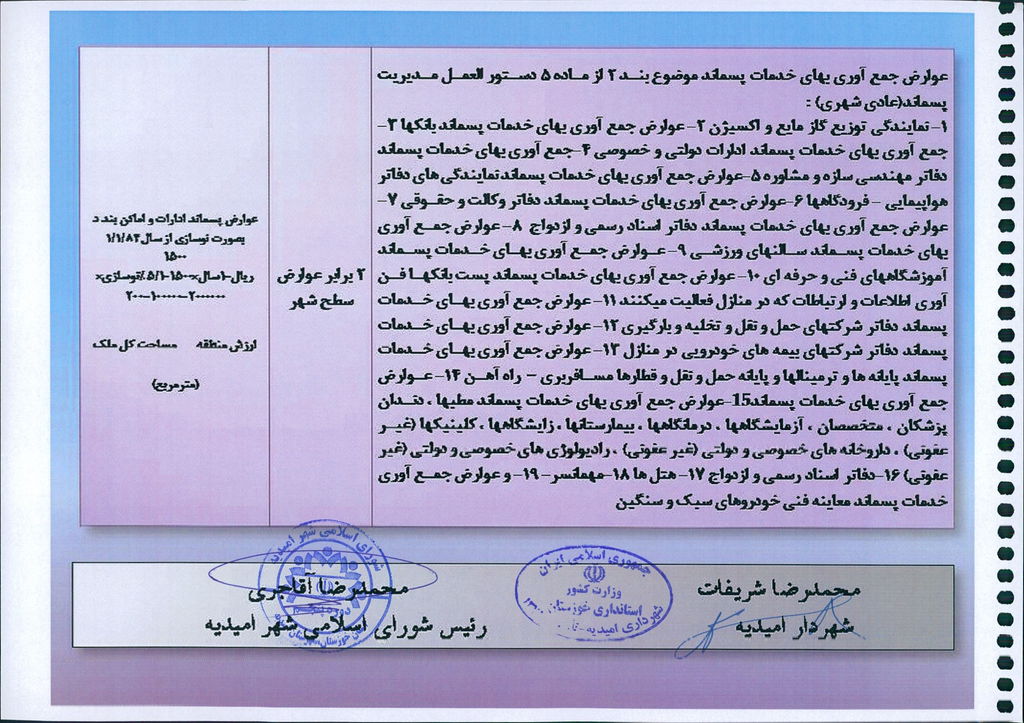 عوارض جمع آوری بهای خدمات پسماند موضوع بند ۲ از ماده ۵ دستور العمل مدیریت
پسماند(عادی شهری) :
۱- نمایندگی توزیع گاز مایع و اکسیژن ۲- عوارض جمع آوری بهای خدمات پسماند بانکها ۳-
جمع آوری بهای خدمات پسماند ادارات دولتی و خصوصی ۴-جمع آوری بهای خدمات پسماند
دفاتر مهندسی سازه و مشاوره ۵-عوارض جمع آوری بهای خدمات پسماند نمایندگی های دفاتر
هواپیمایی - فرودگاهها ۶-عوارض جمع آوری بهای خدمات پسماند دفاتر وکالت و حقوقی ۷-
عوارض جمع آوری بهای خدمات پسماند دفاتر اسناد رسمی و ازدواج ۸-عوارض جمع آوری
بهای خدمات پسماند سالنهای ورزشی ۹-عوارض جمع آوری بهای خدمات پسماند
آموزشگاههای فنی و حرفه ای ۱۰-عوارض جمع آوری بهای خدمات پسماند پست بانکها فن
آوری اطلاعات و ارتباطات که در منازل فعالیت میکنند ۱۱-عوارض جمع آوری بهای خدمات
پسماند دفاتر شرکتهای حمل و نقل و تخلیه و بارگیری ۱۲-عوارض جمع آوری بهای خدمات
پسماند دفاتر شرکتهای بیمه های خودرویی در منازل ۱۳-عوارض جمع آوری بهای خدمات
پسماند پایانه ها و ترمینالها و پایانه حمل و نقل و قطارها مسافربری - راه آهن ۱۴-عوارض
جمع آوری بهای خدمات پسماند15-عوارض جمع آوری بهای خدمات پسماند مطبها ، دندان
پزشکان ، متخصصان ، آزمایشگاهها ، درمانگاهها ، بیمارستانها ، زایشگاهها ، کلینیکها (غیر
عفونی) ، داروخانه های خصوصی و دولتی (غیر عفونی) ، رادیولوژی های خصوصی و دولتی (غیر
عفونی) ۱۶-دفاتر اسناد رسمی و ازدواج ۱۷-هتل ها ۱۸-مهمانسر-۱۹- و عوارض جمع آوری
خدمات پسماند معاینه فنی خودروهای سبک و سنگین
۲ برابر عوارض
سطح شهر
عوارض پسماند ادارات و اماکن بند د
بصورت نوسازی از سال ۱/۱/۸۳
۱۵۰۰
ارزش منطقه مساحت کل ملک
(مترمربع)
محمدرضا شریفات
شهردار امیدیه
جمهوری اسلامی ایران
وزارت کشور
استانداری خوزستان
شهرداری امیدیه
شورای اسلامی شهر امیدیه
محمدرضا آقاجری
رئیس شورای اسلامی شهر امیدیه